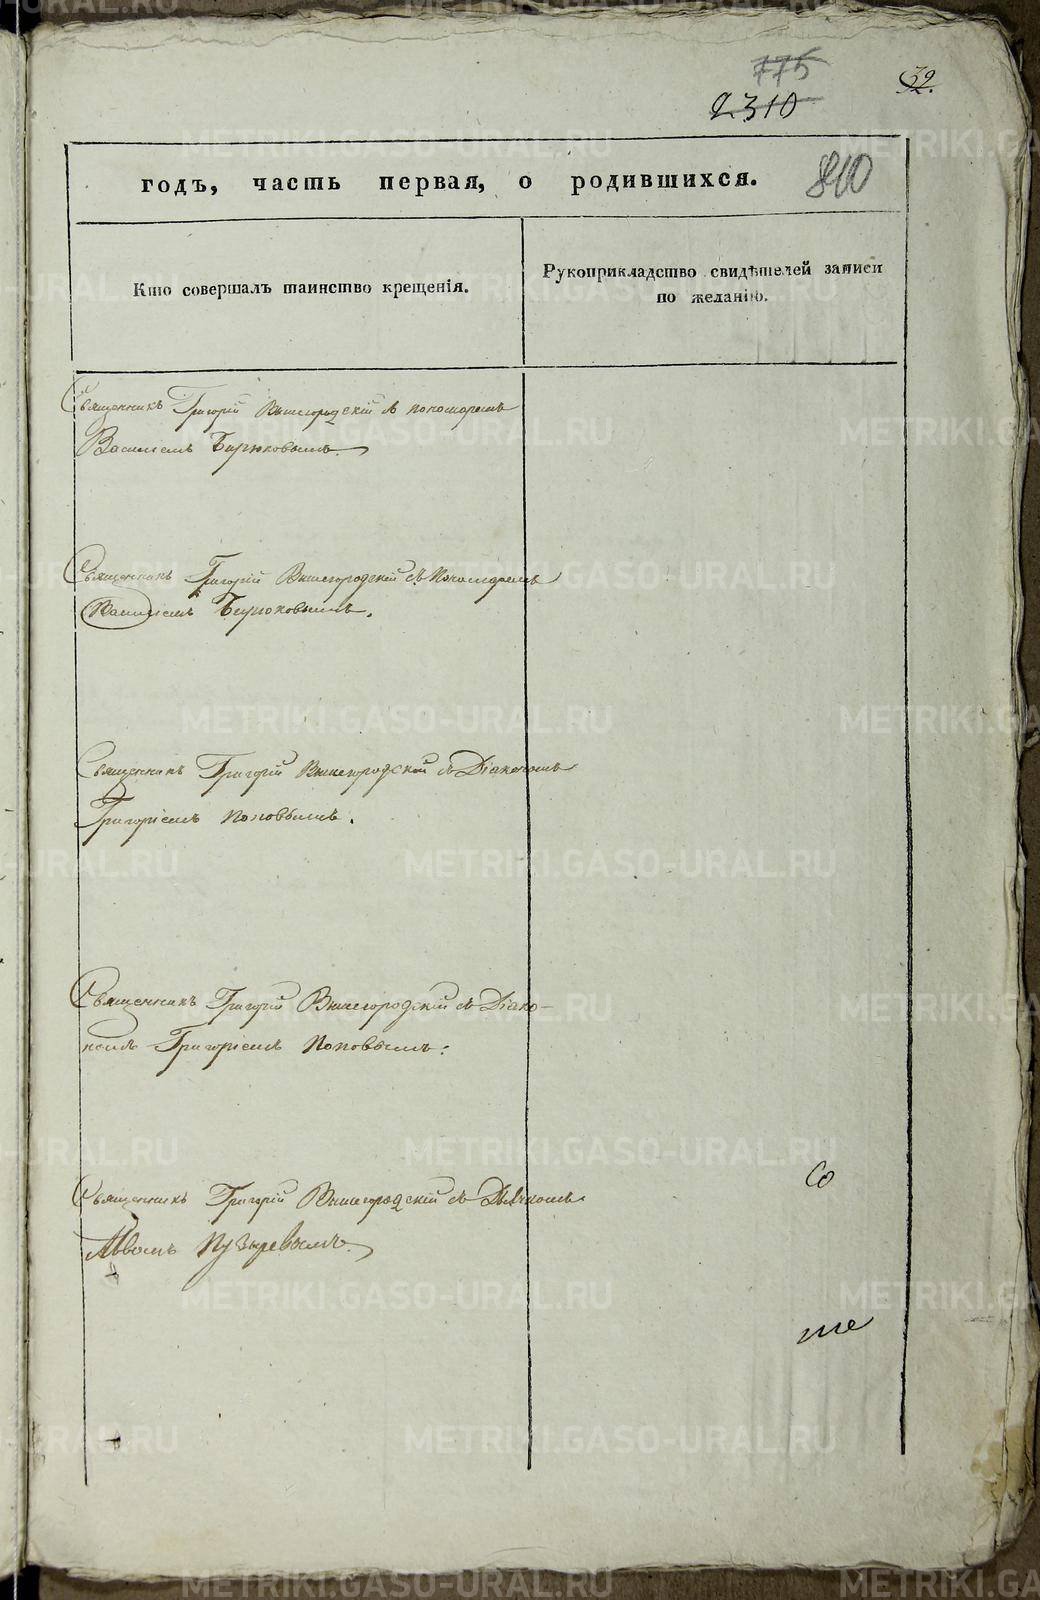 775
2310
32.
810
годъ, часть первая, о родившихся.
Кто совершалъ таинство крещенія.
Рукоприкладство свидѣтелей записи
по желанію.
Священникъ Григорій Вышегородскій съ пономаремъ
Василіемъ Бирюковымъ.
Священникъ Григорій Вышегородскій съ Пономаремъ
Василіемъ Бирюковымъ.
Священникъ Григорій Вышегородскій съ Діакономъ
Григоріемъ Поповымъ.
Священникъ Григорій Вышегородскій съ Діако-
номъ Григоріемъ Поповымъ:
Священникъ Григорій Вышегородскій съ Дьячкомъ
Львомъ Пузыревымъ.
со
METRIKI.GASO-URAL.RU